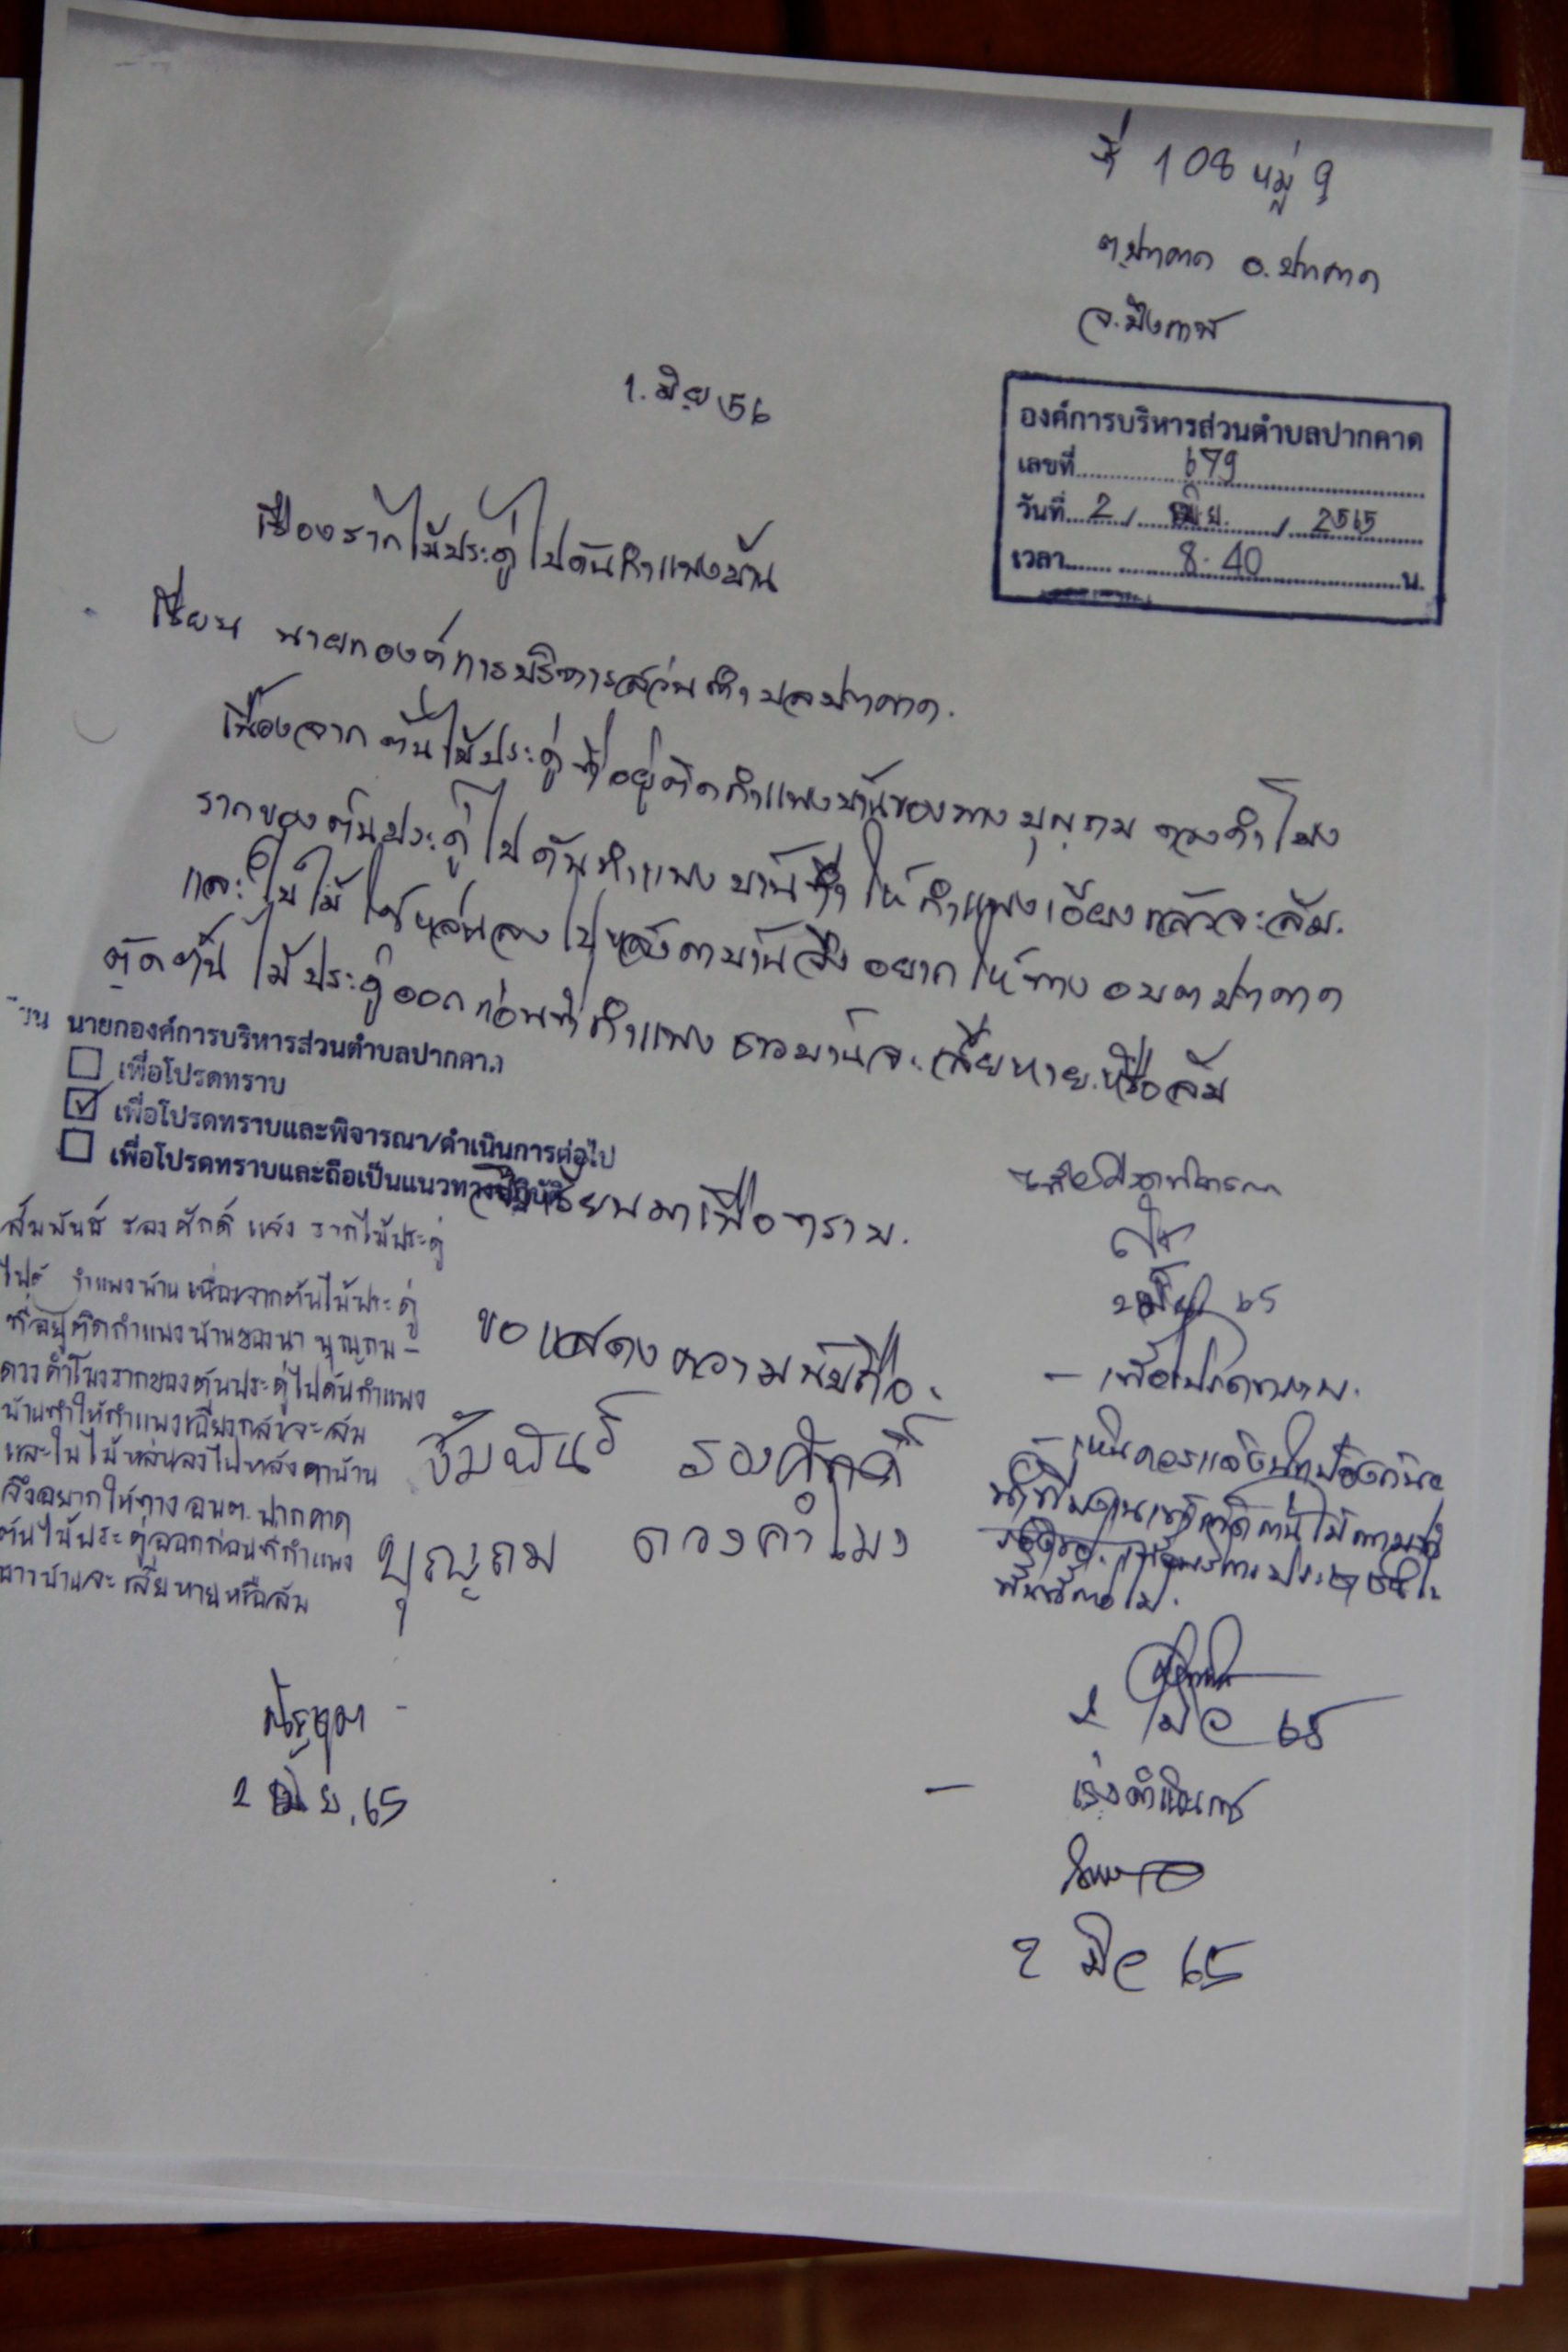 ที่ 108 หมู่ 9
ต.ปากคาด อ.ปากคาด
จ.บึงกาฬ
1. มิ.ย 56
องค์การบริหารส่วนตำบลปากคาด
เลขที่ 679
วันที่ 2 / มิ.ย. / 2565
เวลา 8.40 น.
เรื่องรากไม้ประดู่ไปดันกำแพงบ้าน
เรียน นายกองค์การบริหารส่วนตำบลปากคาด.
เนื่องจาก ต้นไม้ประดู่ ที่อยู่ติดกำแพงบ้านของนาง บุญถม ดวงคำโมง
รากของต้นประดู่ไปดันกำแพงบ้านทำให้กำแพงเอียงแล้วจะล้ม.
และใบไม้ หล่นลงไปหลังคาบ้านจึงอยากให้ทาง อบต ปากคาด
ตัดต้นไม้ประดู่ออกก่อนที่กำแพงชาวบ้านจะเสียหาย.หรือล้ม
นายกองค์การบริหารส่วนตำบลปากคาด
เพื่อโปรดทราบ
เพื่อโปรดทราบและพิจารณา/ดำเนินการต่อไป
เพื่อโปรดทราบและถือเป็นแนวทางปฏิบัติ
จึงเรียนมาเพื่อทราบ.
สัมพันธ์ รองศักดิ์ แจ้ง รากไม้ประดู่
กำแพงบ้าน เนื่องจากต้นไม้ประดู่
ที่อยู่ติดกำแพงบ้านของนา บุญถม -
ดวงคำโมงรากของต้นประดู่ไปดันกำแพง
บ้านทำให้กำแพงเอียงกลัวจะล้ม
และใบไม้หล่นลงไปหลังคาบ้าน
จึงอยากให้ทาง อบต. ปากคาด
ต้นไม้ประดู่ออกก่อนที่กำแพง
ชาวบ้านจะเสียหายหรือล้ม
2 มิ.ย. 65
ขอแสดงความนับถือ.
สัมพันธ์ รองศักดิ์
บุญถม ดวงคำโมง
2 มิย 65
- เพื่อโปรดทราบ.
2 มิย 65
- เร่งดำเนินการ
2 มิย 65